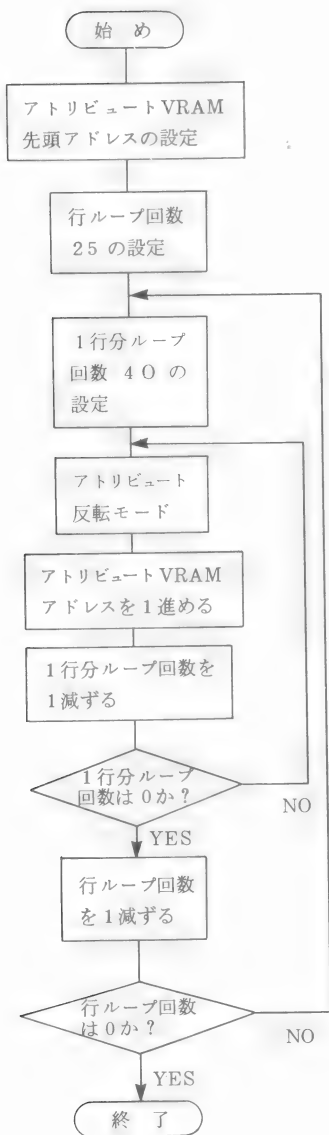 始 め
アトリビュートVRAM
先頭アドレスの設定
行ループ回数
25 の設定
1行分ループ
回数 40 の
設定
アトリビュート
反転モード
アトリビュートVRAM
アドレスを1進める
1行分ループ回数を
1減ずる
1行分ループ
回数は0か?
NO
YES
行ループ回数
を1減ずる
行ループ回数
は0か?
NO
YES
終 了